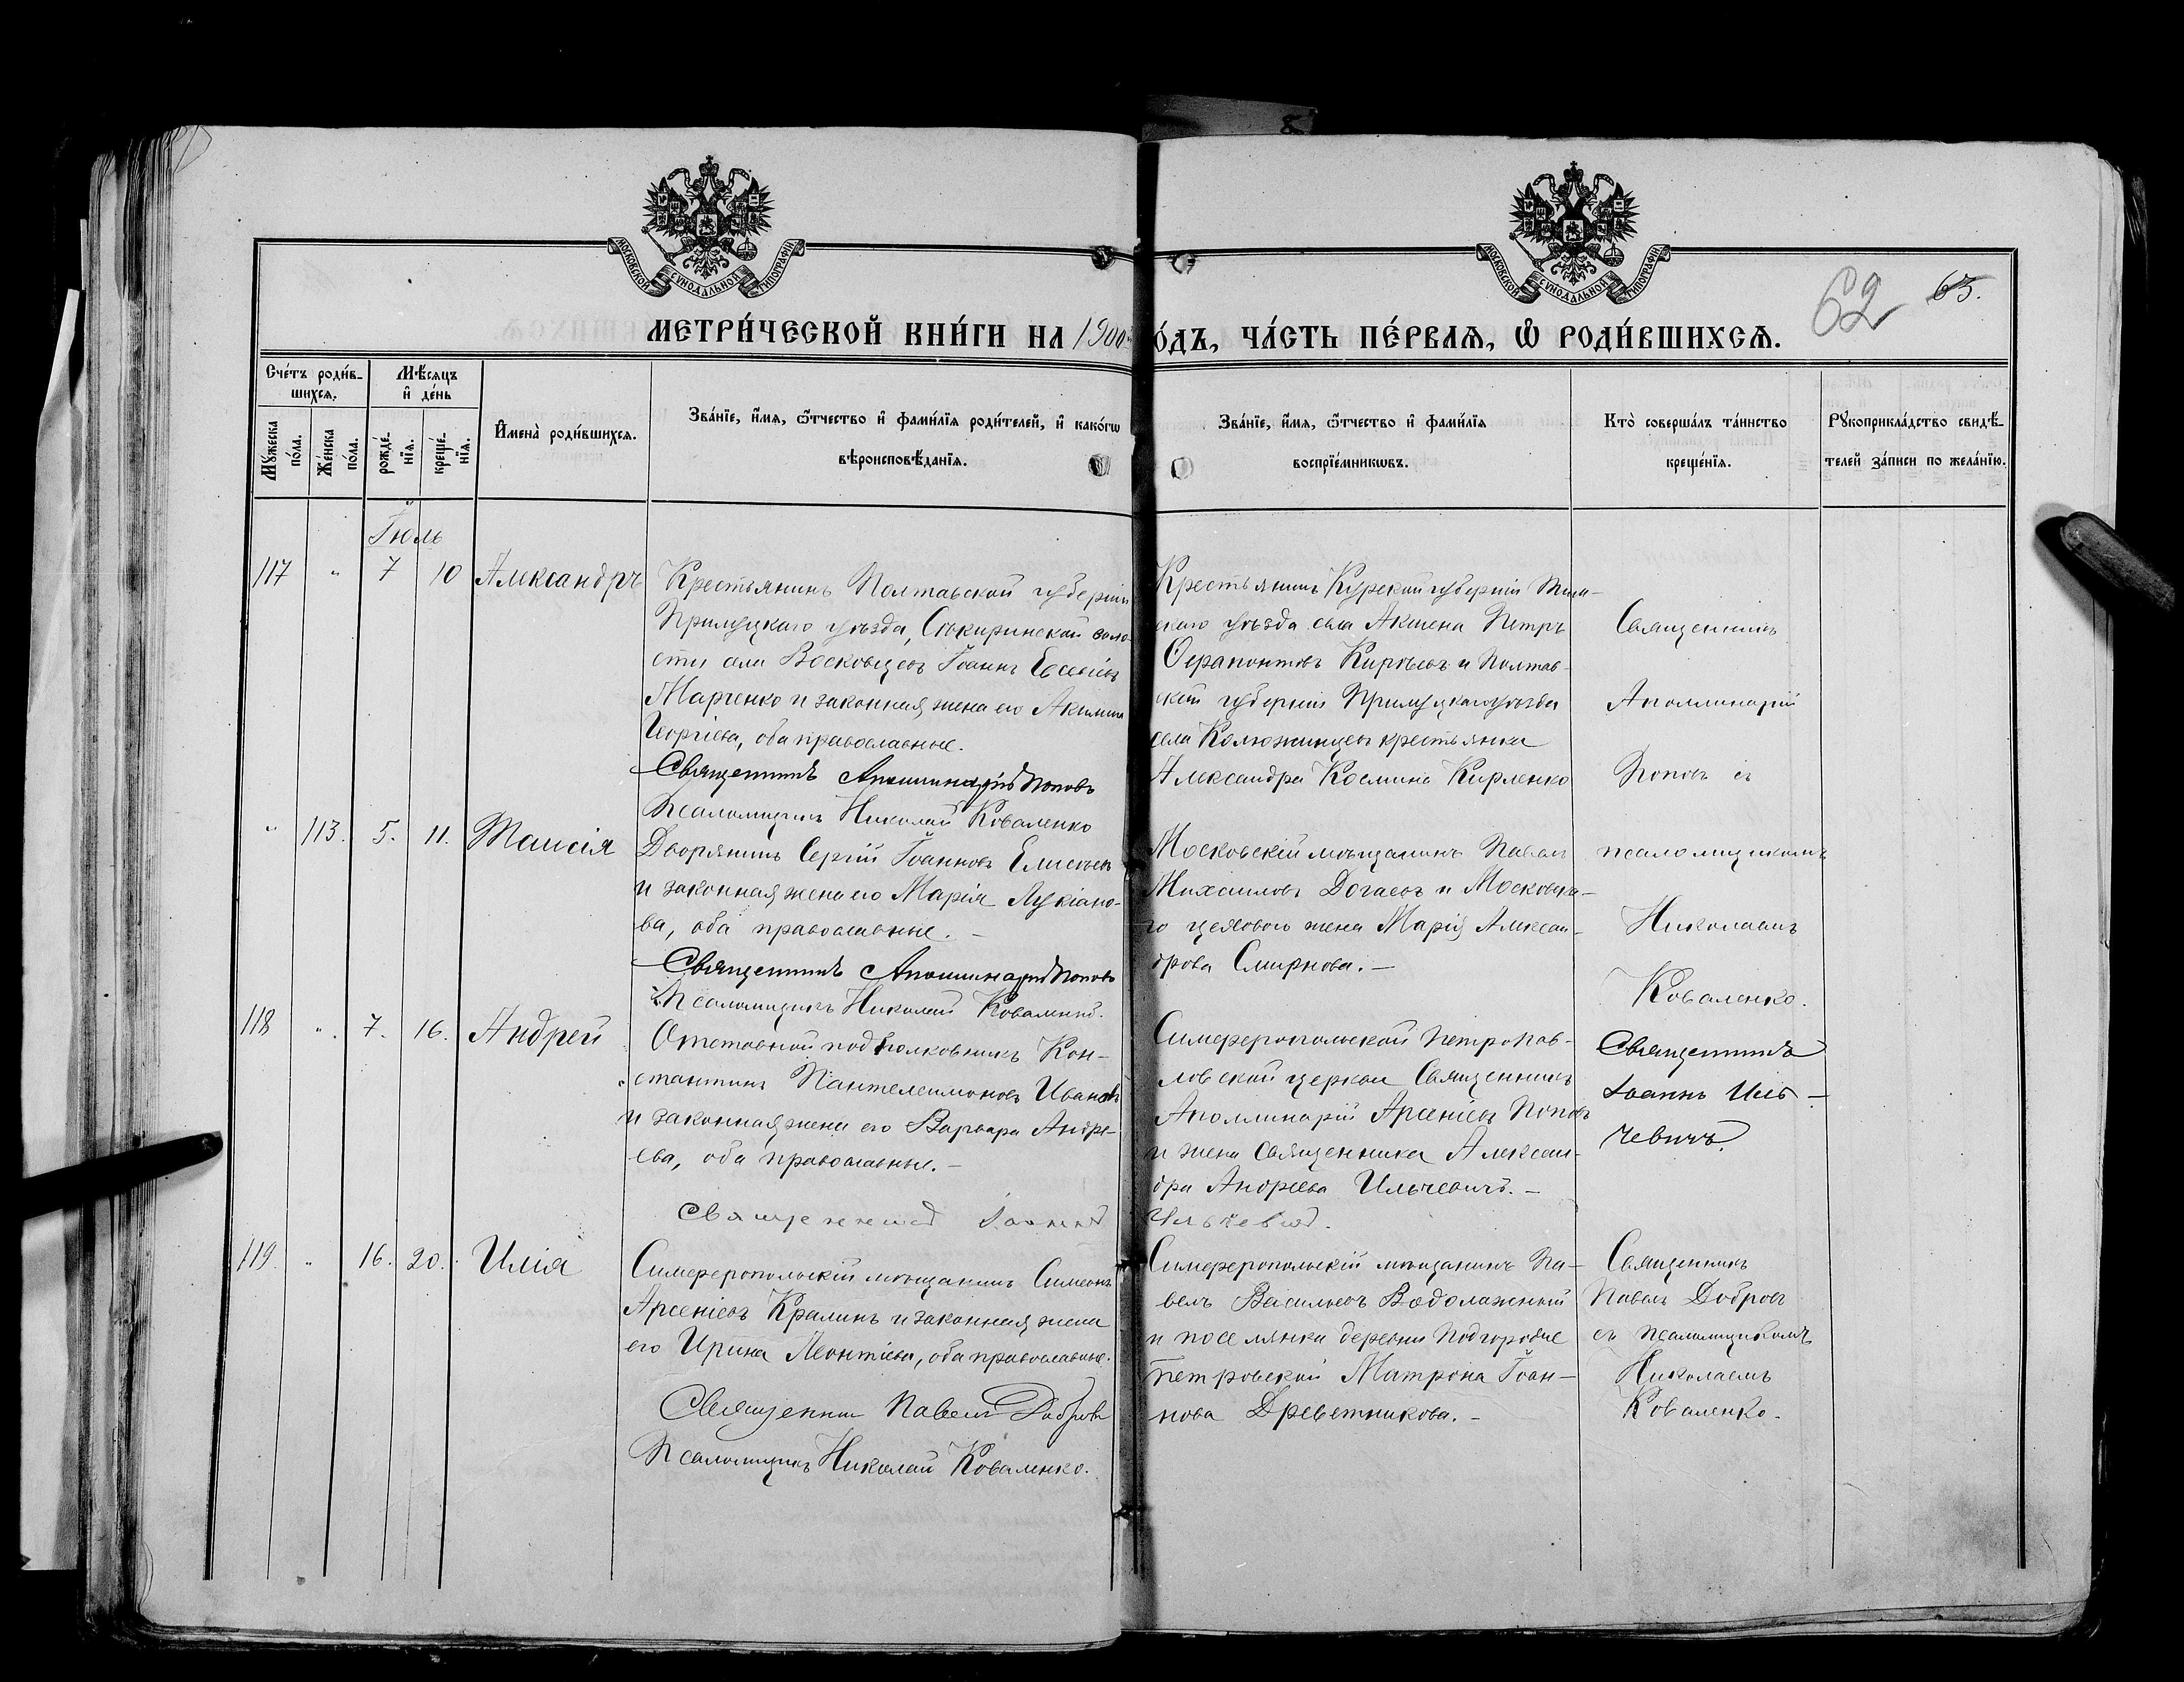 МОСКОВСКОЙ СѴНОДАЛЬНОЙ ТИПОГРАФІИ
МОСКОВСКОЙ СѴНОДАЛЬНОЙ ТИПОГРАФІИ
62 65.
МЕТРИ́ЧЕСКОЙ КНИ́ГИ НА 1900 го́дъ, ЧА́СТЬ ПЕ́РВАѦ, Ѡ҆ РОДИ́ВШИХСѦ.
Сче́тъ роди́в-
шихсѧ.
Мѣ́сѧцъ
и҆ де́нь
Мꙋ́жеска
по́ла.
Же́нска
по́ла.
рожде́-
нїѧ.
креще́-
нїѧ.
И҆мена̀ роди́вшихсѧ.
Зва́нїе, и҆́мѧ, ѻ҆́тчество и҆ фами́лїѧ роди́телей, и҆ како́гѡ
вѣроисповѣ́данїѧ.
Зва́нїе, и҆́мѧ, ѻ҆́тчество и҆ фами́лїѧ
воспрїе́мникѡвъ.
Кто̀ соверша́лъ та́инство
креще́нїѧ.
Рꙋкоприкла́дство свидѣ́-
телей за́писи по жела́нїю.
Іюль
117 " 7 10 Александръ
Крестьянинъ Полтавской губерніи
Прилуцкаго уѣзда, Сокиринской воло-
сти села Восковцевъ Іоаннъ Евсевіевъ
Марченко и законная жена его Акилина
Георгіева, оба православные.
Священникъ Аполлинарій Поповъ
Псаломщикъ Николай Коваленко
Крестьянинъ Курской губерніи
скаго уѣзда села Акшена Петръ
Ферапонтовъ Кирѣевъ и Полтав-
ской губерніи Прилуцкаго уѣзда
села Калюжинцевъ крестьянка
Александра Космина Кирленко
Священникъ
Аполлинарій
Поповъ съ
псаломщикомъ
Николаемъ
Коваленко.
" 113. 5. 11. Таисія
Дворянинъ Сергій Іоанновъ Елисеевъ
и законная жена его Марія Лукіано-
ва, оба православные. -
Священникъ Аполлинарій Поповъ
Псаломщикъ Николай Коваленко.
Московскій мѣщанинъ Павелъ
Михаиловъ Догаевъ и Московска-
го цеховаго жена Марія Алексан-
дрова Смирнова. -
118 " 7. 16. Андрей
Отставной подполковникъ Кон-
стантинъ Пантелеимоновъ Ивановъ
и законная жена его Варвара Андре-
ева, оба православные. -
Священникъ Іоаннъ
Симферопольской Петропав-
ловской церкви Священникъ
Аполлинарій Арсеніевъ Поповъ
и жена священника Алексан-
дра Андреева Ильчевичъ. -
Ильчевичъ.
Священникъ
Іоаннъ Иль-
чевичъ.
119. " 16. 20. Илія
Симферопольскій мѣщанинъ Симеонъ
Арсеніевъ Кралинъ и законная жена
его Ирина Леонтіева, оба православные.
Священникъ Павелъ Добровъ
Псаломщикъ Николай Коваленко.
Симферопольскій мѣщанинъ Па-
велъ Васильевъ Водолажный
и поселянка деревни Подгородне
Петровской Матрона Іоан-
нова Древетникова. -
Священникъ
Павелъ Добровъ
съ псаломщикомъ
Николаемъ
Коваленко.